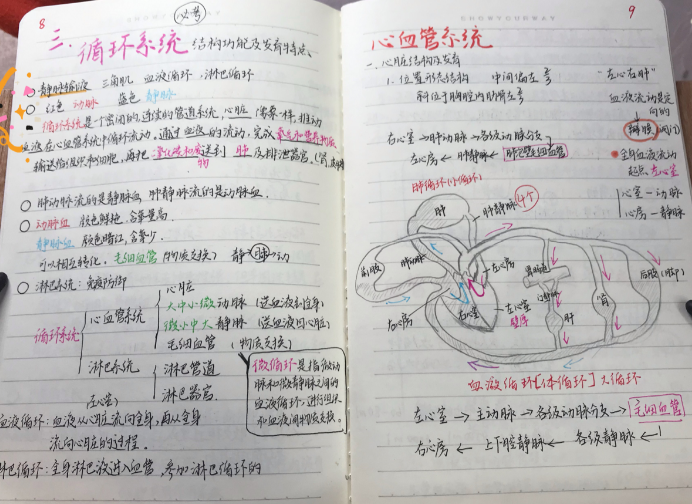 8
必考
三、循环系统 结构功能及发育特点
静脉输液 三角肌 血液循环 淋巴循环
红色 动脉 蓝色 静脉
循环系统是一个密闭的连续的管道系统,心脏 像泵一样,推动
血液在心血管系统中循环流动,通过血液的流动,完成氧气和营养物质
输送给组织和细胞,再把
及排泄器官。
肺动脉流的是静脉血 肺静脉流的是动脉血.
动脉血 颜色鲜艳,含氧量高.
静脉血 颜色暗红,含氧少.
可以相互转化. 毛细血管 (物质交换) 静脉→动
淋巴系统:免疫防御
循环系统
心血管系统
心脏
大中小微动脉 (送血液到全身)
微小中大静脉 (送血液回心脏)
毛细血管 (物质交换)
淋巴系统
淋巴管道
淋巴器官.
微循环是指微动
脉和微静脉之间的
血液循环,进行组织
和血液间物质交换.
(左心室)
血液循环:血液从心脏流向全身,再从全身
流向心脏的过程.
淋巴循环:全身淋巴液进入血管,参加淋巴循环的
9
心血管系统
一.心脏结构及发育
1.位置形态结构 中间偏左
斜位于胸腔内
"左心右肺"
血液流动是定
向的
瓣膜
全身血液流动
起点 左心室
心室—动脉
心房—静脉
右心室→肺动脉→各级动脉分支
左心房←肺静脉←肺泡壁毛细血管
肺循环(小循环)
肺
肺静脉 4个
肺动脉
左心房
右心室
左心室
壁厚
右心房
肝
肾
血液循环[体循环]大循环
左心室→主动脉→各级动脉分支→毛细血管
右心房←上下腔静脉←各级静脉